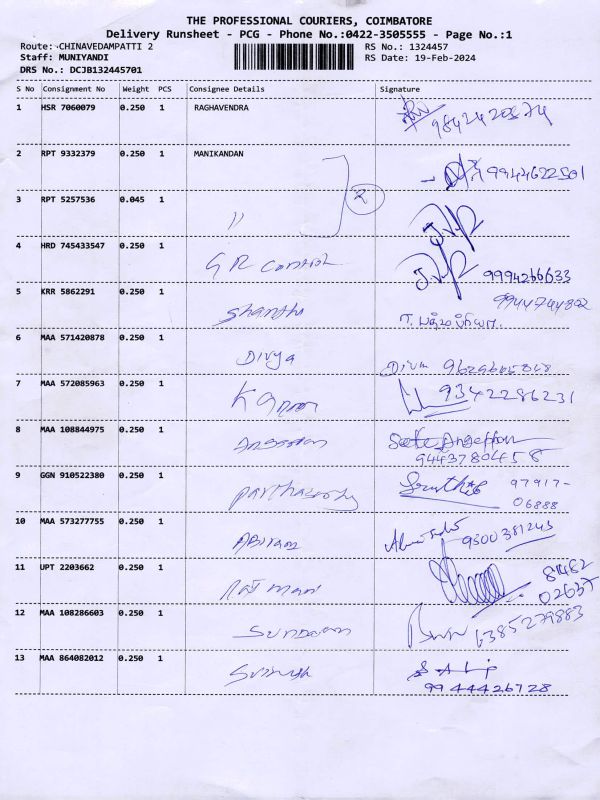 THE PROFESSIONAL COURIERS, COIMBATORE
Delivery Runsheet - PCG - Phone No.:0422-3505555 - Page No.:1
Route: CHINAVEDAMPATTI 2 RS No.: 1324457
Staff: MUNIYANDI RS Date: 19-Feb-2024
DRS No.: DCJB132445701
S No Consignment No Weight PCS Consignee Details Signature
1 HSR 7060079 0.250 1 RAGHAVENDRA
2 RPT 9332379 0.250 1 MANIKANDAN 9944622501
3 RPT 5257536 0.045 1 " 2
4 HRD 745433547 0.250 1 GR Control 9994266633
5 KRR 5862291 0.250 1 Shanthi 9944744802
6 MAA 571420878 0.250 1 Divya Divya
7 MAA 572085963 0.250 1 Kannan 9342286231
8 MAA 108844975 0.250 1
9443780458
9 GGN 910522380 0.250 1 97917-
06888
10 MAA 573277755 0.250 1 Abiram 9300381243
11 UPT 2203662 0.250 1
02637
12 MAA 108286603 0.250 1 Sundaram 6385279883
13 MAA 864082012 0.250 1
9944426728